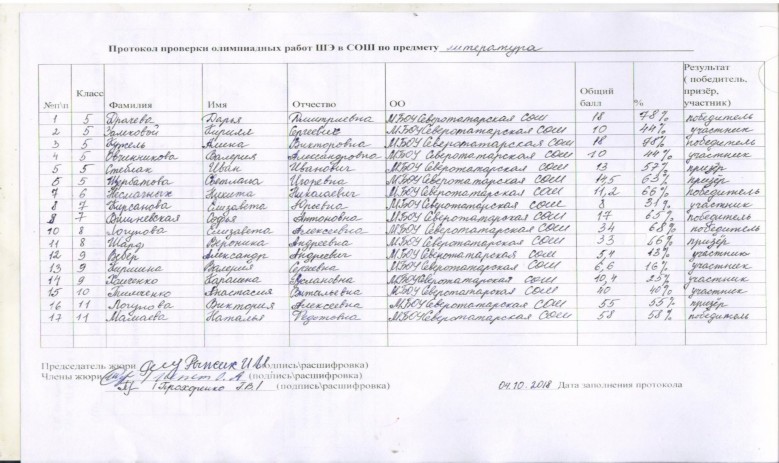 Протокол проверки олимпиадных работ ШЭ в СОШ по предмету литература
№п\п Класс Фамилия Имя Отчество ОО Общий балл % Результат ( победитель, призёр, участник)
1 5 Дарья Дмитриевна МБОУ Севротатарская СОШ 18 78% победитель
2 5 Кирилл Сергеевич МБОУ Севротатарская СОШ 10 44% участник
3 5 Алена Викторовна МБОУ Севротатарская СОШ 18 78% победитель
4 5 Овчинникова Валерия Александровна МБОУ Севротатарская СОШ 10 44% участник
5 5 Иван Иванович МБОУ Севротатарская СОШ 13 57% призёр
5 Курбатова Светлана Игоревна МБОУ Севротатарская СОШ 14,5 63% призёр
6 Никита Николаевич МБОУ Севротатарская СОШ 11,2 66% победитель
8 7 Кирсанова Елизавета Юрьевна МБОУ Севротатарская СОШ 8 31% участник
7 Вишневская Софья Антоновна МБОУ Севротатарская СОШ 17 65% победитель
10 8 Логунова Елизавета Алексеевна МБОУ Севротатарская СОШ 34 68% победитель
11 8 Вероника Андреевна МБОУ Севротатарская СОШ 33 66% призёр
12 9 Вебер Александр Андреевич МБОУ Севротатарская СОШ 5,4 13% участник
13 9 Валерия Сергеевна МБОУ Севротатарская СОШ 6,6 16% участник
14 9 Каролина Руслановна МБОУ Севротатарская СОШ 10,4 25% участник
15 10 Анастасия Витальевна МБОУ Севротатарская СОШ 40 40% участник
16 11 Логунова Виктория Алексеевна МБОУ Севротатарская СОШ 55 55% призёр
17 11 Мамаева Наталья Федотовна МБОУ Севротатарская СОШ 58 58% победитель
Председатель жюри (подпись\расшифровка)
Члены жюри (подпись\расшифровка)
Прохоренко (подпись\расшифровка) 04.10.2018 Дата заполнения протокола